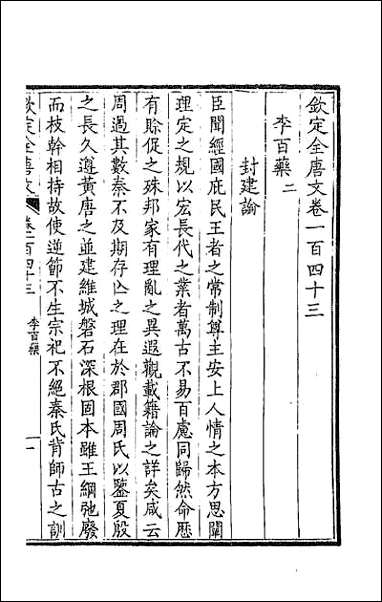 欽定全唐文卷一百四十三
李百藥二
封建論
臣聞經國庇民王者之常制尊主安上人情之本方思闡
理定之規以宏長代之業者萬古不易百慮同歸然命歷
有賒促之殊邦家有理亂之異遐觀載籍論之詳矣咸云
周過其數秦不及期存亾之理在於郡國周氏以鑒夏殷
之長久遵黃唐之並建維城磐石深根固本雖王綱弛廢
而枝幹相持故使逆節不生宗祀不絕秦氏背師古之訓
欽定全唐文
卷一百四十三
李百藥
一